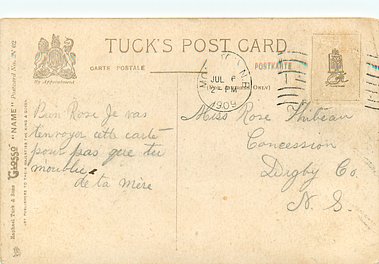 TUCK'S POST CARD
CARTE POSTALE
POSTKARTE
By Appointment
JUL 6
2 - PM
1909
Bien Rose Je vas
t'envoyer cette carte
pour pas que tu
m'oublie
de ta Mère
Miss Rose Thibeau
Concession
Digby Co.
N. S.
Raphael Tuck & Sons "Glosso" "NAME" Postcard No. N 62
ART PUBLISHERS TO THEIR MAJESTIES THE KING & QUEEN